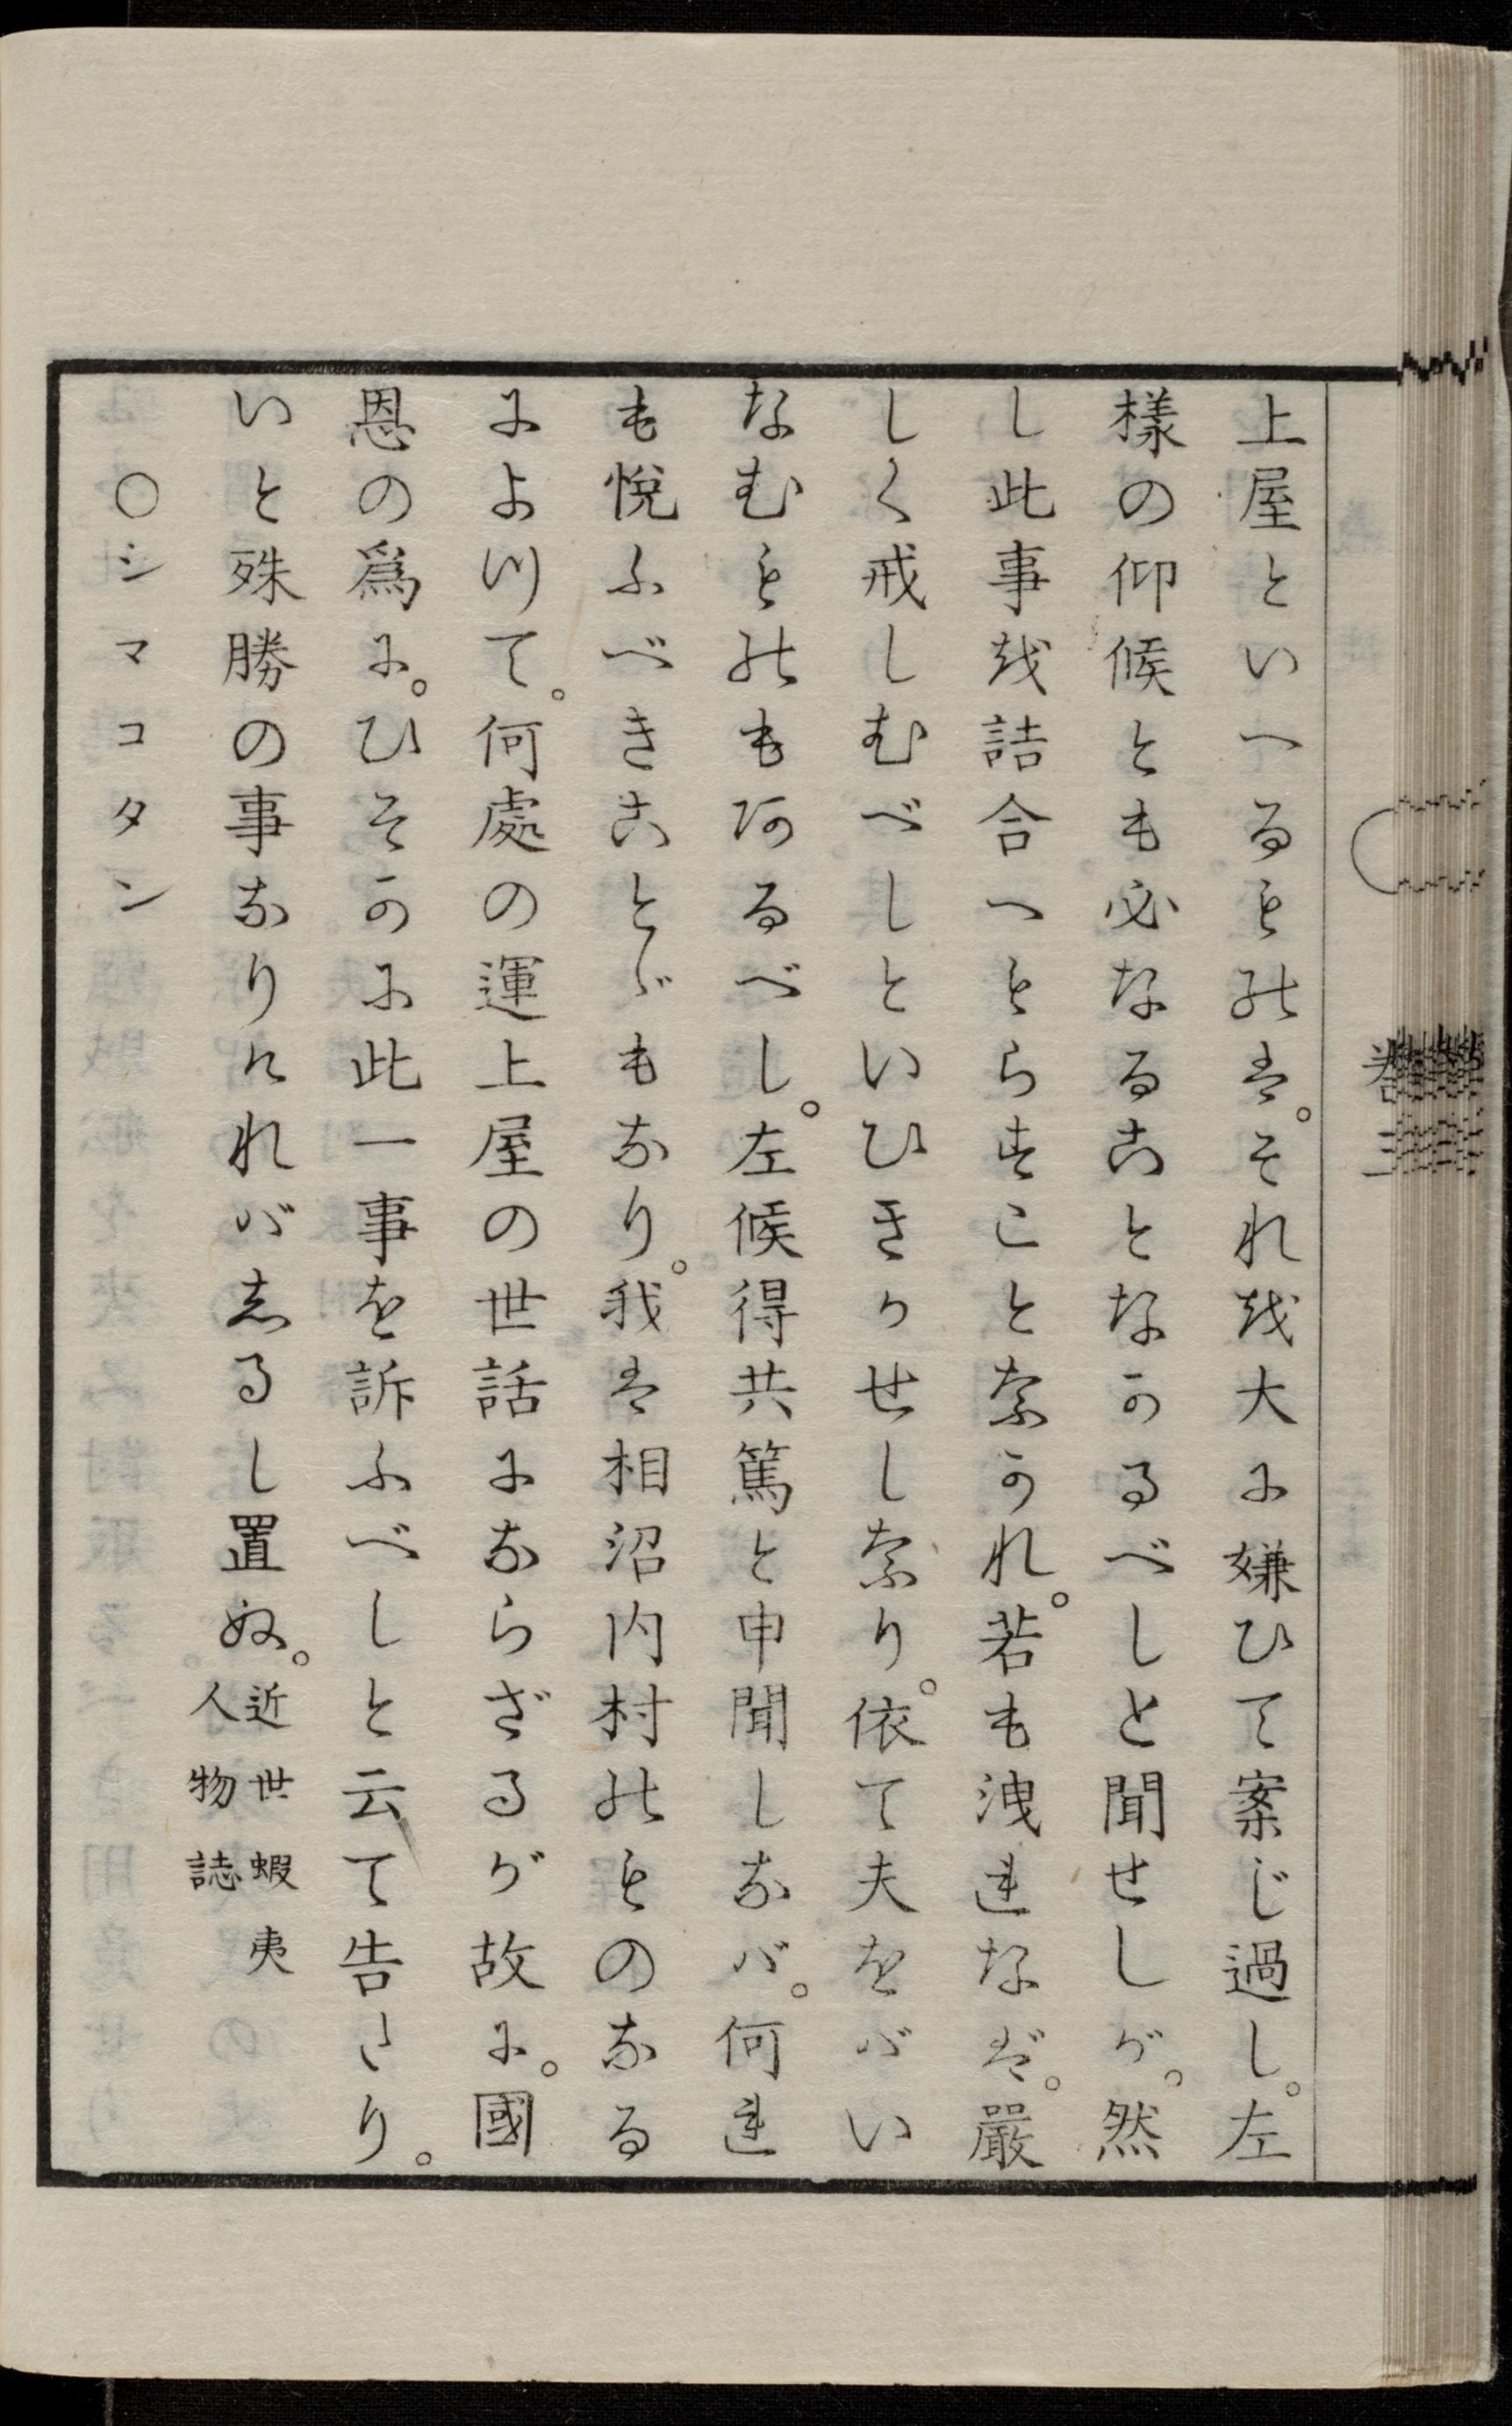 上屋といへるものは。それを大に嫌ひて案じ過し。左
様の仰候とも必なることなかるべしと聞せしが。然
し此事を詰合へもらすことなかれ。若も洩れなば。嚴
しく戒しむべしといひきかせしなり。依て夫をばい
なむものもあるべし。左候得共篤と申聞しなば。何れ
も悅ふべきことゞもなり。我は相沼内村のものなる
によつて。何處の運上屋の世話にならざるが故に。國
恩の爲に。ひそかに此一事を訴ふべしと云て告たり。
いと殊勝の事なりければしるし置ぬ。近世蝦夷
人物誌
○シマコタン
卷三